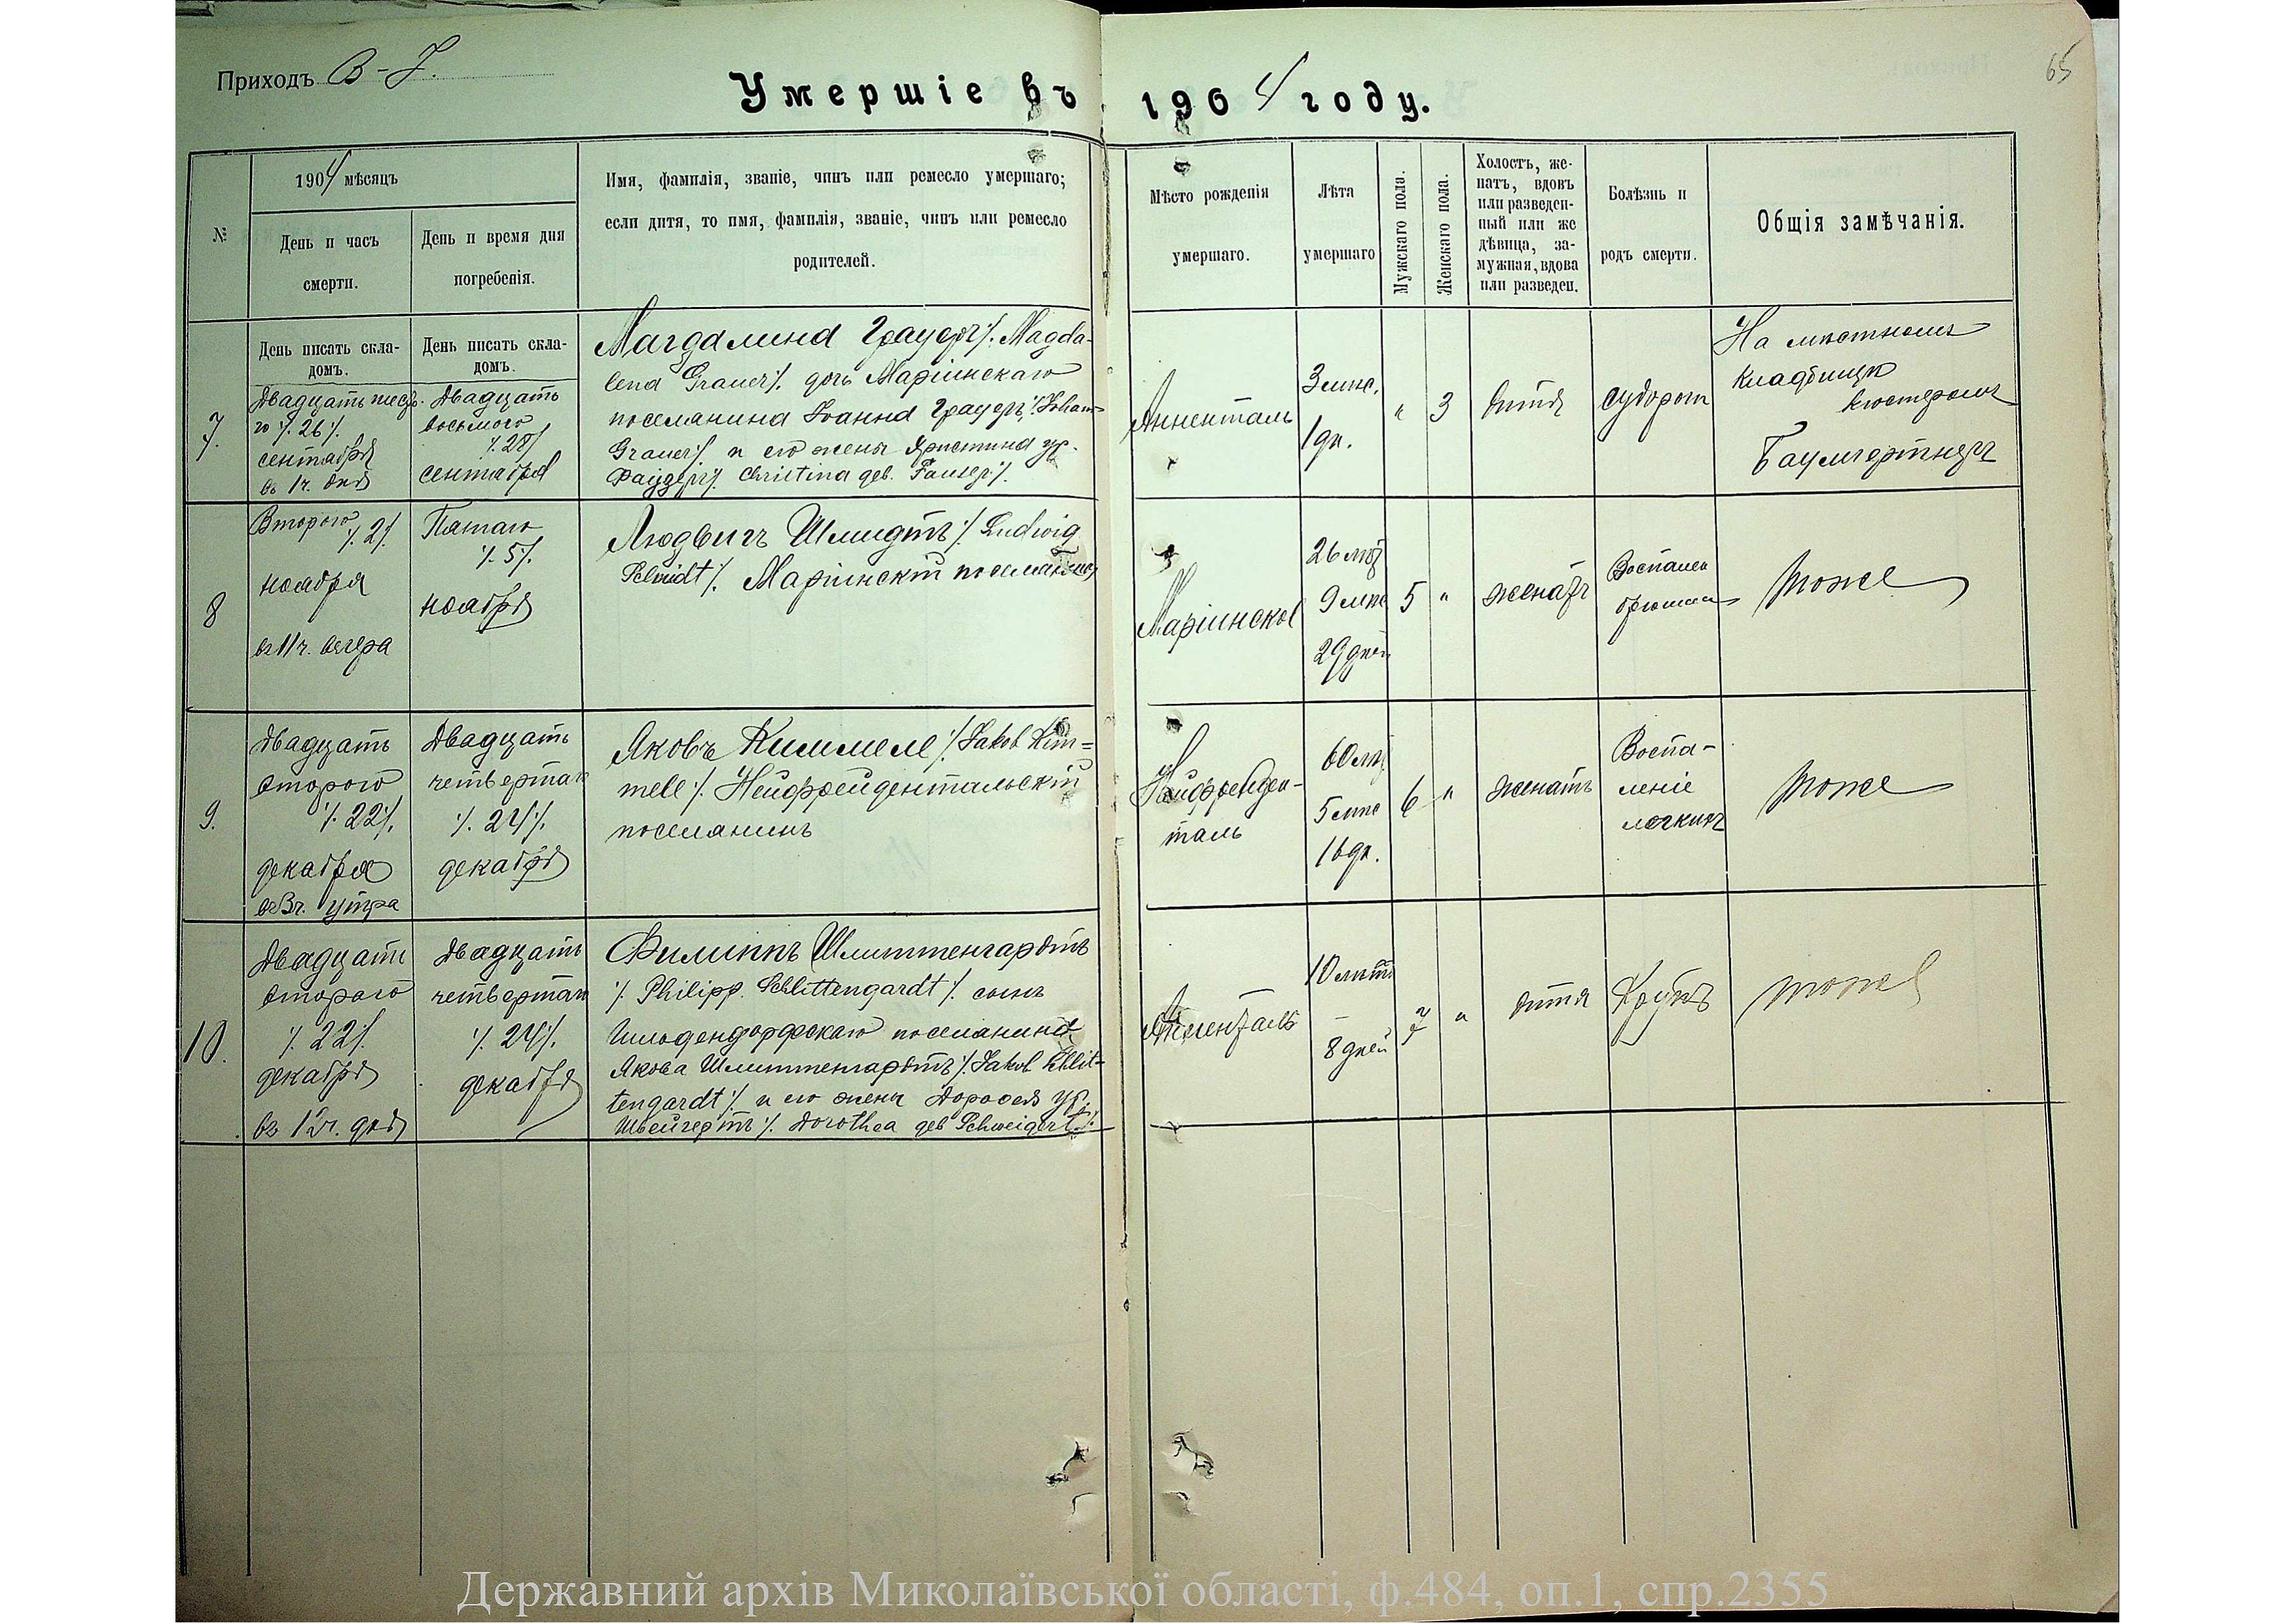 Приходъ В-Ф.
65
Умершіе въ 1904 году.
№
1904 мѣсяцъ
День и часъ
смерти.
День и время дня
погребенія.
Имя, фамилія, званіе, чинъ или ремесло умершаго;
если дитя, то имя, фамилія, званіе, чинъ или ремесло
родителей.
Мѣсто рожденія
умершаго.
Лѣта
умершаго
Мужскаго пола.
Женскаго пола.
Холостъ, же-
натъ, вдовъ
или разведен-
ный или же
дѣвица, за-
мужная, вдова
или разведен.
Болѣзнь и
родъ смерти.
Общія замѣчанія.
7.
День писать скла-
домъ.
Двадцать шест.
го /. 26 /.
сентября
въ 1 ч. дня
День писать скла-
домъ.
Двадцать
восьмого
/. 28 /
сентября
Магдалина Грауеръ /. Magda-
lena Grauer /. дочь Маріинскаго
поселянина Іоанна Грауеръ /. Johann
Grauer /. и его жены Христина ур.
Фаузеръ /. Christina geb. Fauser /.
Анненталь
3 мѣс.
1 дн.
"
3
дитя
судороги
На мѣстномъ
кладбищѣ
кюстеромъ
Баумгертнеръ
8
Второго
/. 2 /.
ноября
въ 11 ч. вечера
Пятаго
/. 5 /.
ноября
Людвигъ Шмидтъ /. Ludwig
Schmidt /. Маріинскій поселянинъ
Маріинское
26 лѣт
9 мѣс
29 дней
5
"
женатъ
Воспален
брюшин
тоже
9.
Двадцать
второго
/. 22 /.
декабря
въ 3 ч. утра
Двадцать
четвертаго
/. 24 /.
декабря
Яковъ Киммеле /. Jakob Kim-
mele /. Нейфрейдентальскій
поселянинъ
Нейфрейден-
таль
60 лѣт
5 мѣс
16 дн.
6
"
женатъ
Воспа-
леніе
легкихъ
тоже
10.
Двадцать
второго
/. 22 /.
декабря
въ 12 ч. дня
Двадцать
четвертаго
/. 24 /.
декабря
Филиппъ Шлиттенгардтъ
/. Philipp Schlittengardt /. сынъ
поселянина
Якова Шлиттенгардтъ /. Jakob Schlit-
tengardt /. и его жены Доротея ур.
Швейгертъ /. Dorothea geb Schweigert /.
Анненталь
10 лѣтъ
8 дней
7
"
дитя
Крупъ
тоже
Державний архів Миколаївської області, ф.484, оп.1, спр.2355